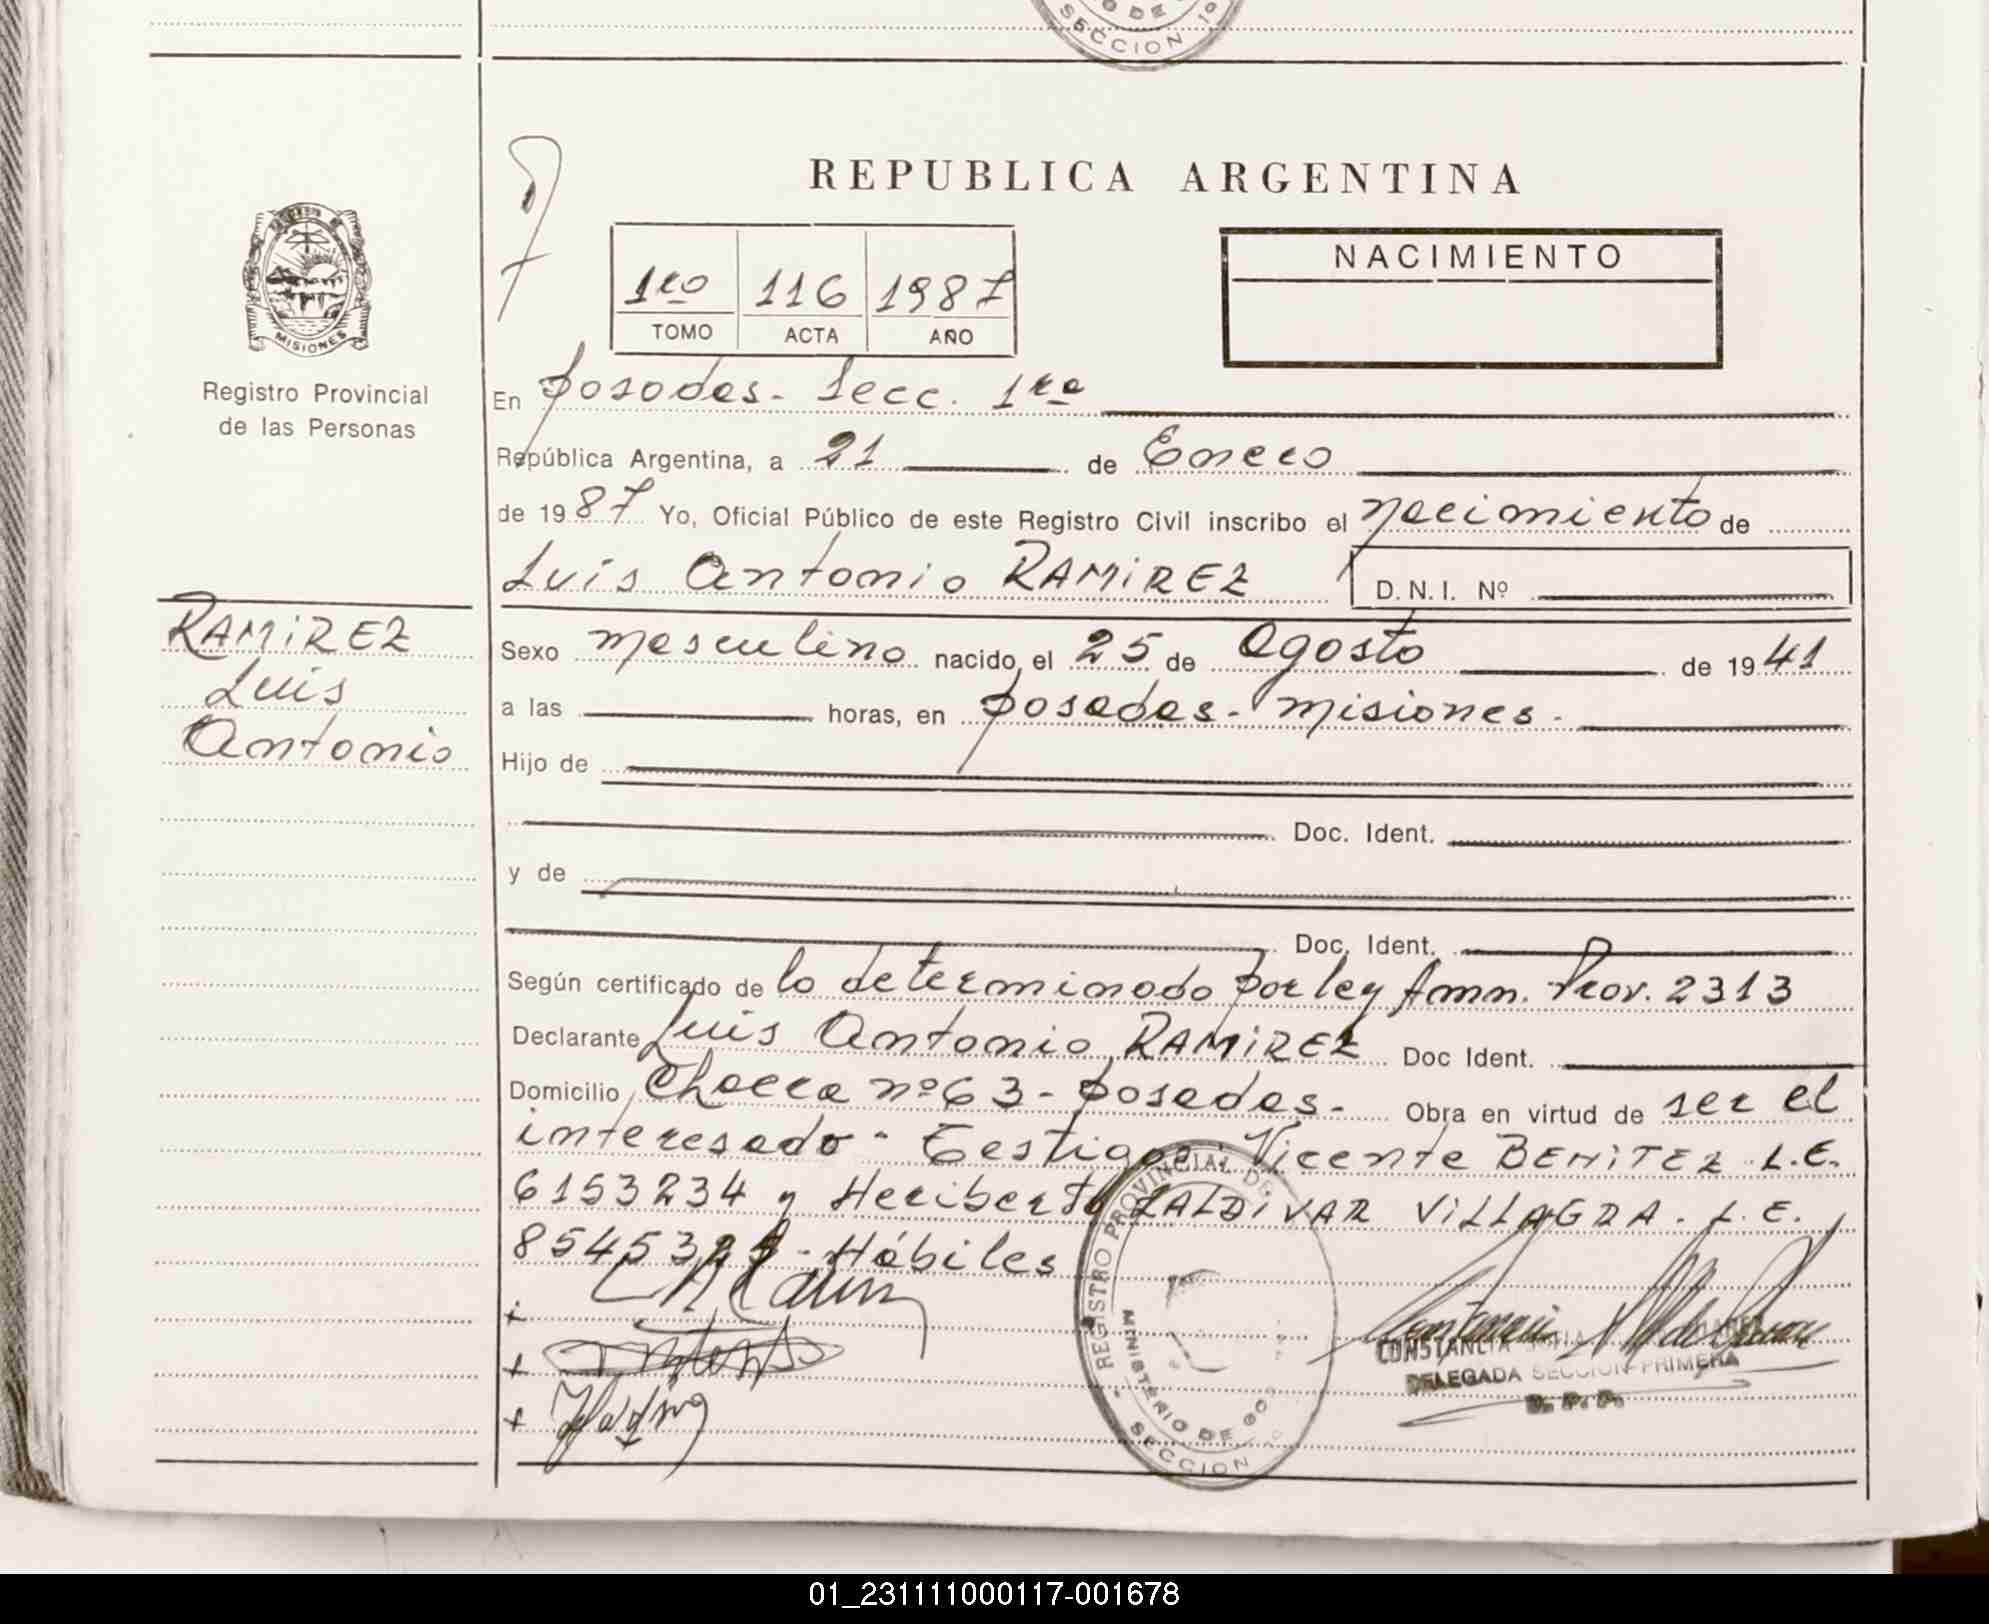 O DE
SECCION 1º
REPUBLICA ARGENTINA
NACIMIENTO
1ro 116 1987
TOMO ACTA AÑO
MISIONES
Registro Provincial
de las Personas
En Posadas - Secc. 1ra
República Argentina, a 21 de Enero
de 1987 Yo, Oficial Público de este Registro Civil inscribo el nacimiento de
Luis Antonio RAMIREZ D.N.I. Nº
RAMIREZ
Luis
Antonio
Sexo masculino nacido, el 25 de Agosto de 1941
a las horas, en Posadas - Misiones -
Hijo de
Doc. Ident.
y de
Doc. Ident.
Según certificado de lo determinado por ley Amn. Prov. 2313
Declarante Luis Antonio RAMIREZ Doc Ident.
Domicilio Chacra nº 63 - Posadas - Obra en virtud de ser el
interesado - Testigos: Vicente BENITEZ L.E.
6153234 y Heriberto ZALDIVAR VILLAGRA. L.E.
- Hábiles
REGISTRO PROVINCIAL DE
MINISTERIO DE GOB
SECCION
CONSTANCIA
DELEGADA SECCION PRIMERA
R. P. P.
01_231111000117-001678